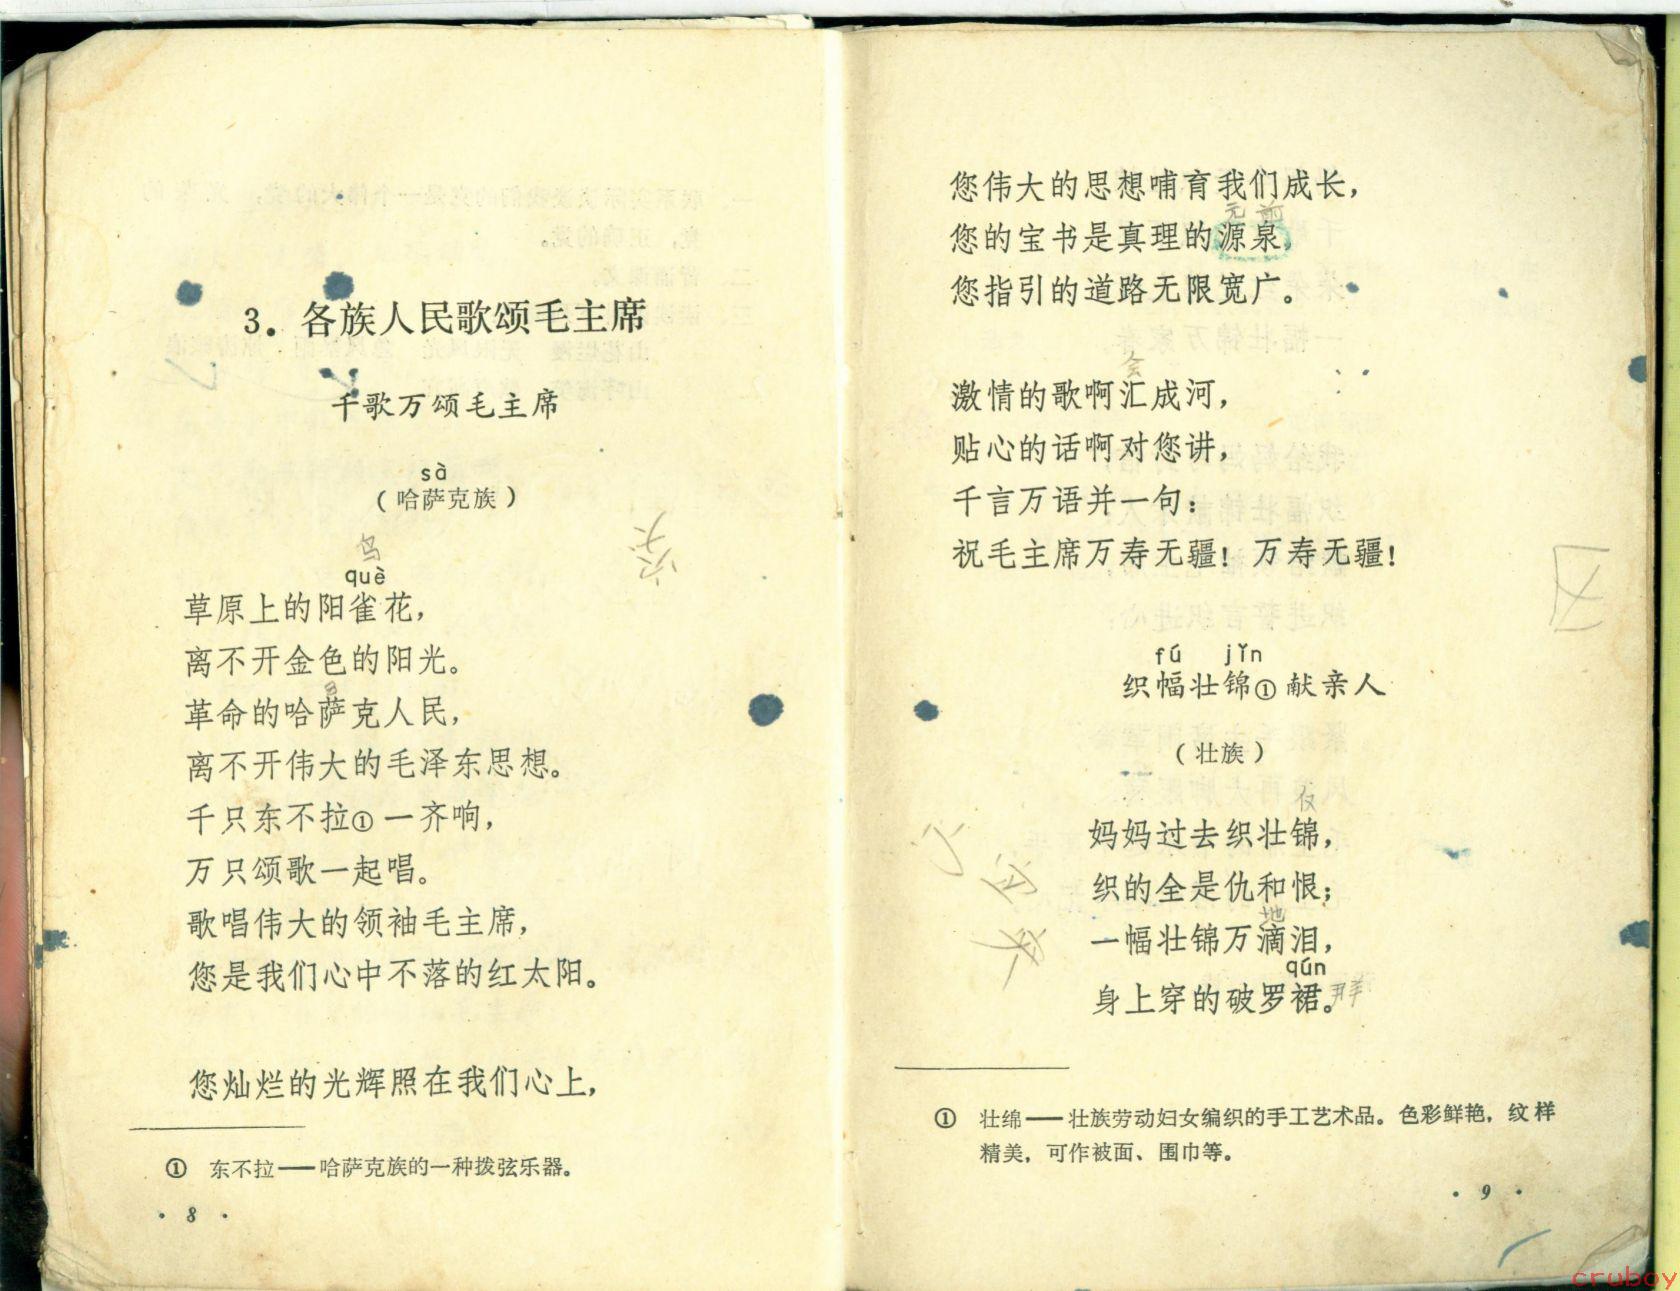 3. 各族人民歌颂毛主席
千歌万颂毛主席
sà
（哈萨克族）
鸟
què
草原上的阳雀花，
离不开金色的阳光。
革命的哈萨克人民，
离不开伟大的毛泽东思想。
千只东不拉①一齐响，
万只颂歌一起唱。
歌唱伟大的领袖毛主席，
您是我们心中不落的红太阳。
您灿烂的光辉照在我们心上，
① 东不拉——哈萨克族的一种拨弦乐器。
· 8 ·
您伟大的思想哺育我们成长，
元 前
您的宝书是真理的源泉，
您指引的道路无限宽广。
会
激情的歌啊汇成河，
贴心的话啊对您讲，
千言万语并一句：
祝毛主席万寿无疆！万寿无疆！
fú jǐn
织幅壮锦①献亲人
（壮族）
妈妈过去织壮锦，
织的全是仇和恨；
地
一幅壮锦万滴泪，
qún
身上穿的破罗裙。
① 壮绵——壮族劳动妇女编织的手工艺术品。色彩鲜艳，纹样
精美，可作被面、围巾等。
· 9 ·
cruboy